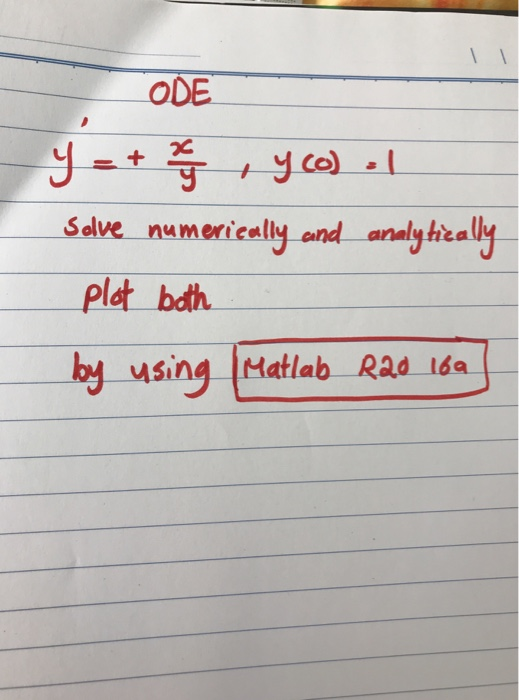 ODE
y' = + x/y , y(0) = 1
Solve numerically and analytically
plot both
by using Matlab R2016a